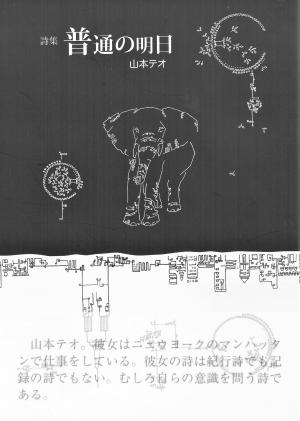 詩集 普通の明日
山本テオ
山本テオ。彼女はニュウヨークのマンハッタ
ンで仕事をしている。彼女の詩は紀行詩でも記
録の詩でもない。むしろ自らの意識を問う詩で
ある。